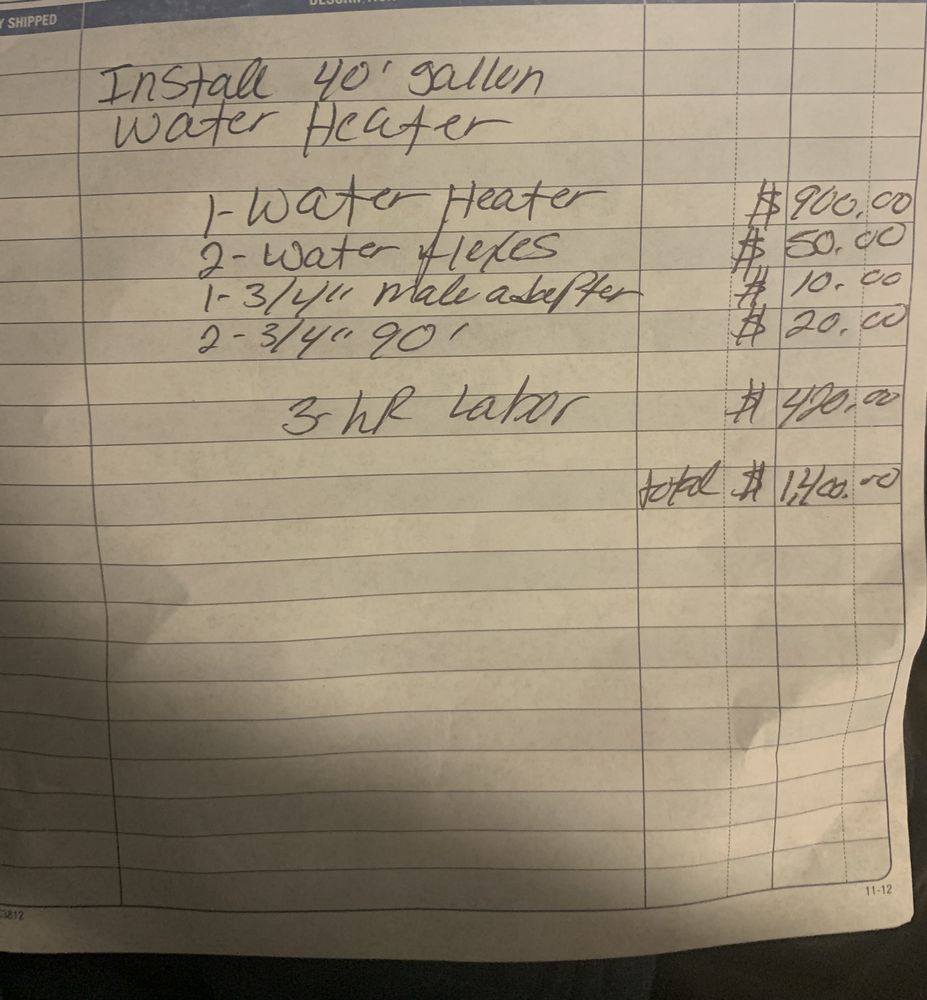 Y SHIPPED
Install 40' gallon
Water Heater
1-Water Heater $ 900.00
2-Water flexes $ 50.00
1-3/4" male adapter $ 10.00
2-3/4" 90' $ 20.00
3-hR Labor $ 420.00
total $ 1,400.00
11-12
3812